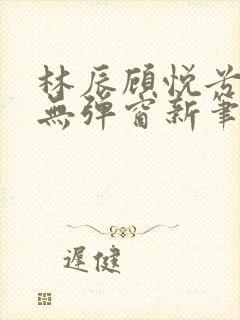 林辰顾悦兮
無弹窗新筆
遲健